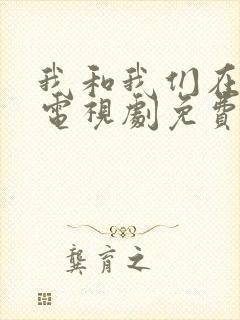 我和我们在
電視劇免費
龔育之